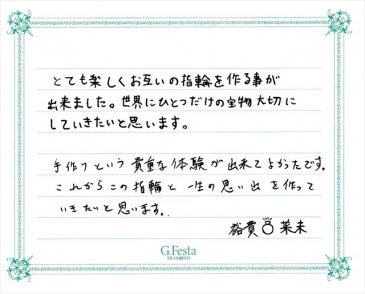 とても楽しくお互いの指輪を作る事が
出来ました。世界にひとつだけの宝物大切に
していきたいと思います。
手作りという貴重な体験が出来てよかったです。
これからこの指輪と一生の思い出を作って
いきたいと思います。
裕貴 菜未
G.Festa
DIAMOND